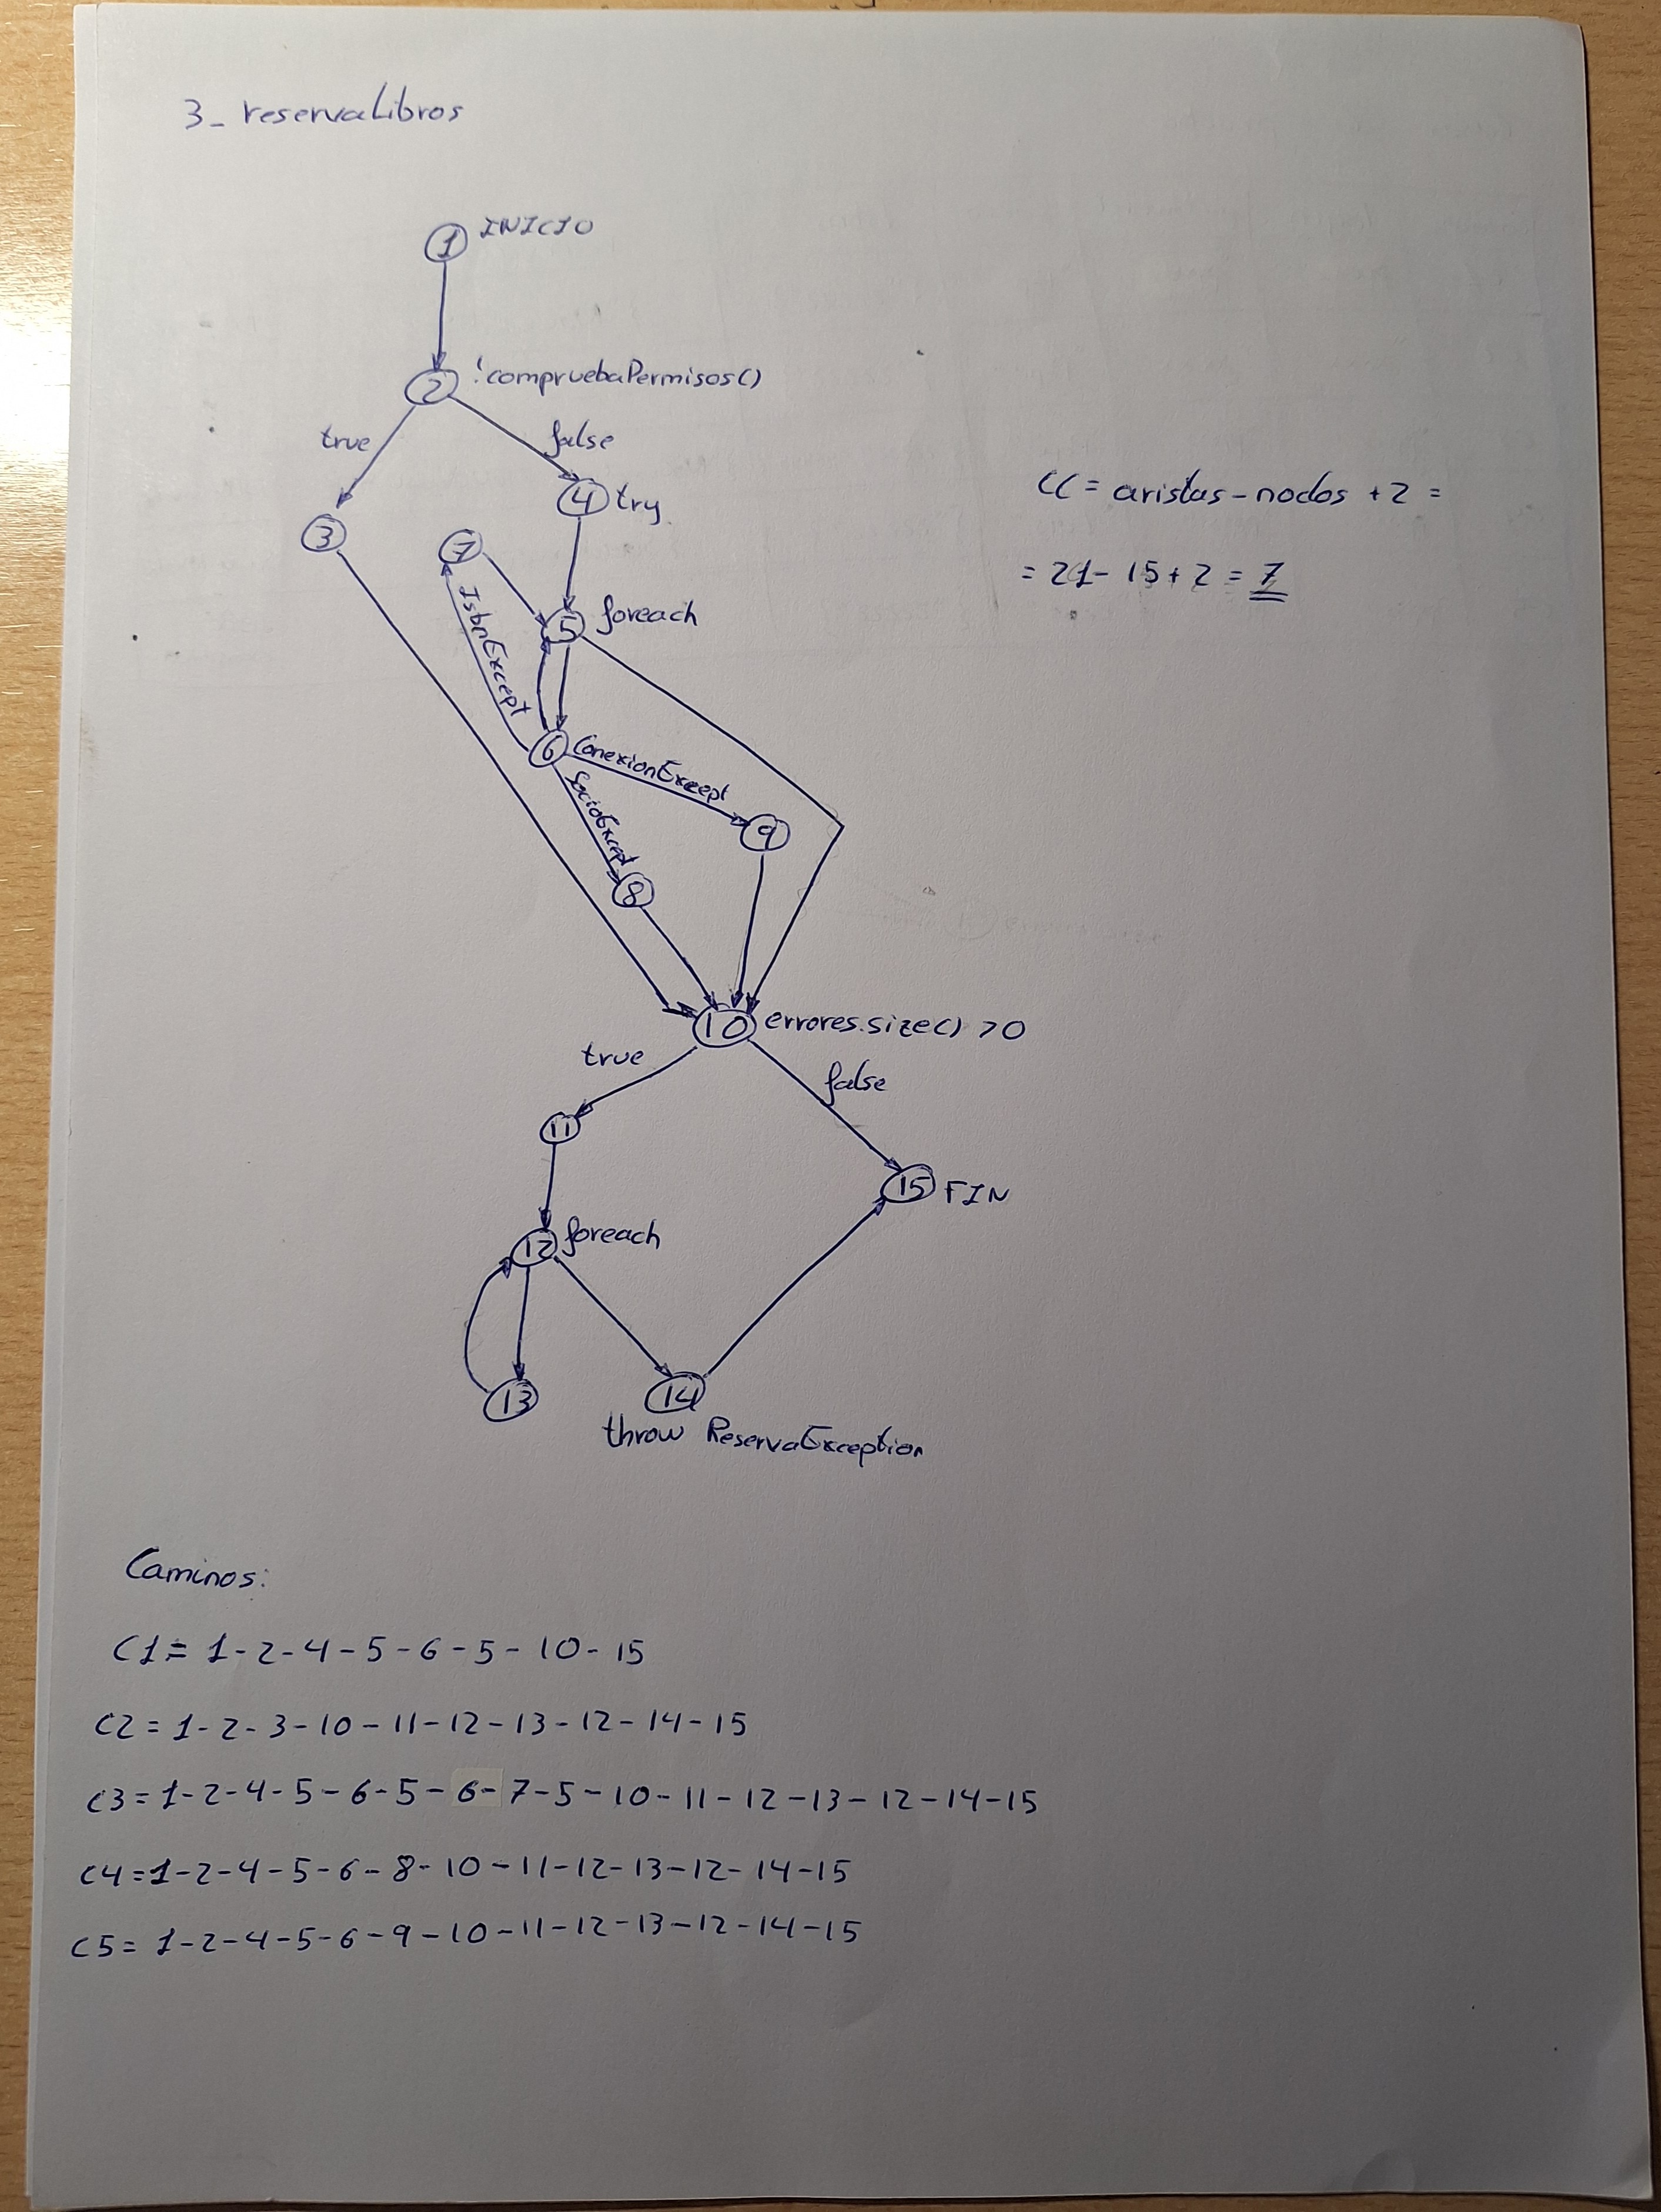 3_ reservaLibros
1 INICIO
2 !compruebaPermisos()
true
false
CC = aristas - nodos + 2 =
= 21 - 15 + 2 = 7
4 try
3
7
IsbnExcept
5 foreach
6 ConexionExcept
SocioExcept
9
8
10 errores.size() > 0
true
false
11
15 FIN
12 foreach
13
14
throw ReservaException
Caminos:
C1 = 1 - 2 - 4 - 5 - 6 - 5 - 10 - 15
C2 = 1 - 2 - 3 - 10 - 11 - 12 - 13 - 12 - 14 - 15
C3 = 1 - 2 - 4 - 5 - 6 - 5 - 6 - 7 - 5 - 10 - 11 - 12 - 13 - 12 - 14 - 15
C4 = 1 - 2 - 4 - 5 - 6 - 8 - 10 - 11 - 12 - 13 - 12 - 14 - 15
C5 = 1 - 2 - 4 - 5 - 6 - 9 - 10 - 11 - 12 - 13 - 12 - 14 - 15